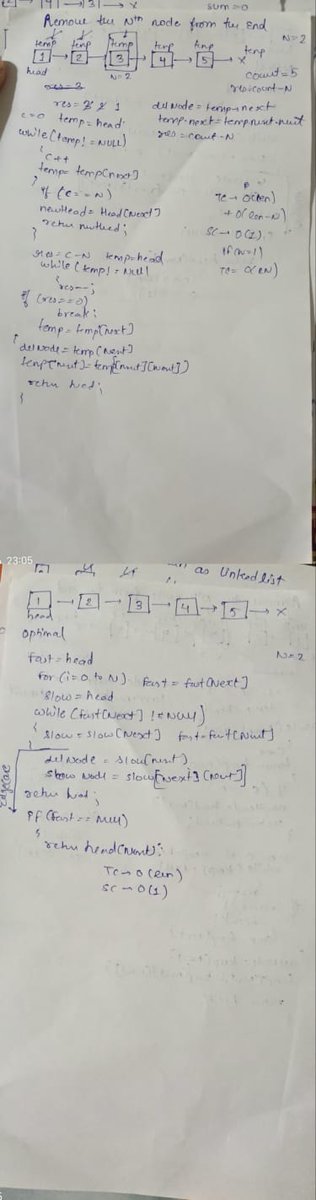 sum=0
Remove the Nth node from the End
N=2
temp temp temp temp temp temp
1 → 2 → 3 → 4 → 5 → X
head N=2 count=5
res=3 res=count-N
res=3 2 1 delNode=temp→next
c=0 temp=head temp→next=temp→next→next
while(temp!=NULL) res=cout-N
{
c++
temp=temp[next]
}
if (c==N)
newHead=Head[Next]
return newHead;
}
TC → O(len)
+ O(len-N)
SC → O(1)
if(N=1)
TC= O(2N)
res=c-N temp=head
while(temp!=Null)
{
res--;
if (res==0)
break;
temp=temp[next]
}
delNode=temp[Next]
temp[Next]=temp[next][Next]
return head;
}
23:05
as linked list
1 → 2 → 3 → 4 → 5 → X
head
optimal
N=2
fast=head
for(i=0 to N) fast=fast[Next]
slow=head
while(fast[Next]!=NULL)
{
slow=slow[Next] fast=fast[Next]
}
delNode=slow[next]
slow Node=slow[Next][Next]
return head;
Edge Case
if(fast==Null)
{
return head[Next];
TC → O(len)
SC → O(1)